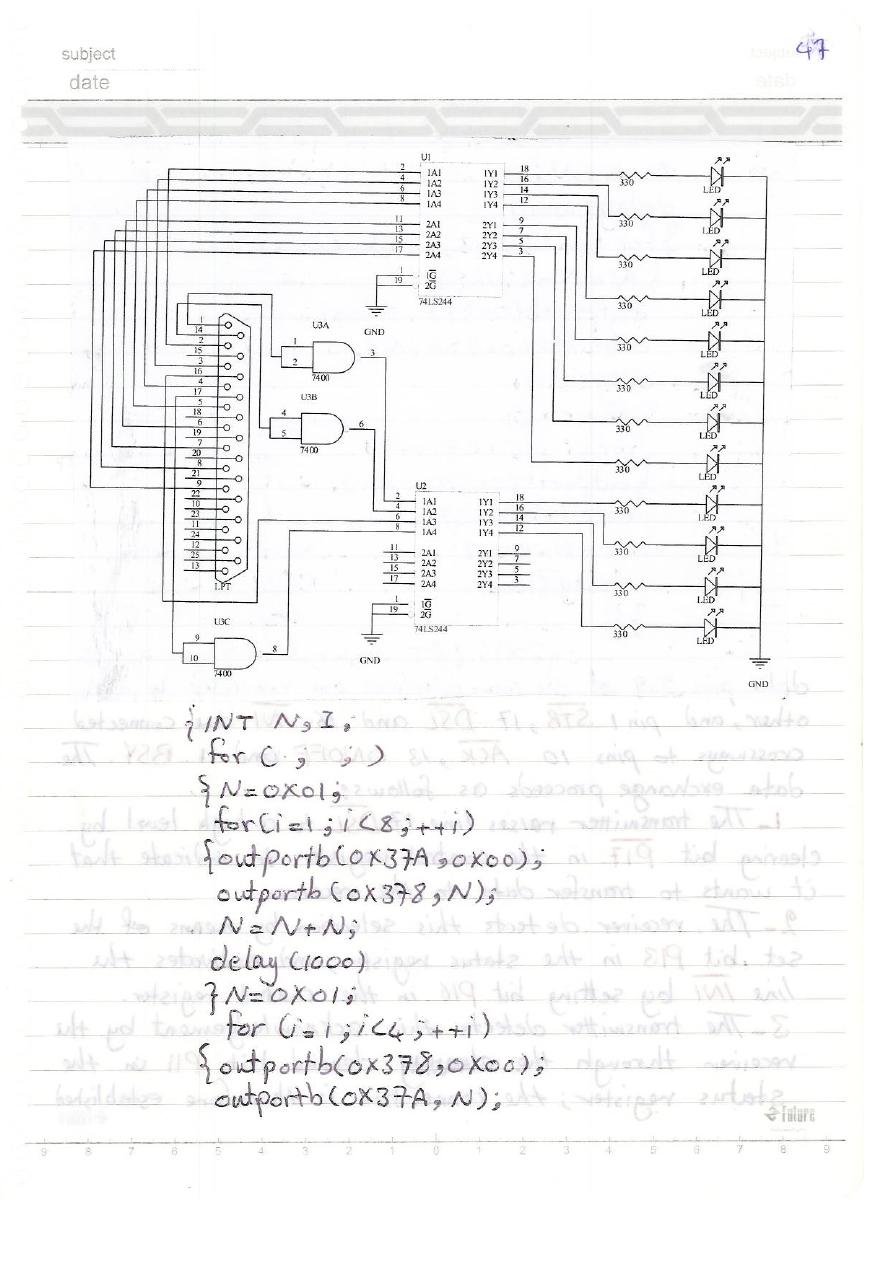 47
subject
date
U1
2 1A1 1Y1 18
4 1A2 1Y2 16
6 1A3 1Y3 14
8 1A4 1Y4 12
11 2A1 2Y1 9
13 2A2 2Y2 7
15 2A3 2Y3 5
17 2A4 2Y4 3
1 1G
19 2G
74LS244
GND
330 LED
330 LED
330 LED
330 LED
330 LED
330 LED
330 LED
330 LED
330 LED
330 LED
330 LED
330 LED
GND
U3A
1
2
3
7400
U3B
4
5
6
7400
1
14
2
15
3
16
4
17
5
18
6
19
7
20
8
21
9
22
10
23
11
24
12
25
13
LPT
U2
2 1A1 1Y1 18
4 1A2 1Y2 16
6 1A3 1Y3 14
8 1A4 1Y4 12
11 2A1 2Y1 9
13 2A2 2Y2 7
15 2A3 2Y3 5
17 2A4 2Y4 3
1 1G
19 2G
74LS244
GND
U3C
9
10
8
7400
{INT N,I;
for( ; ; )
{N=0X01;
for(i=1;i<8;++i)
{outportb(0X37A,0X00);
outportb(0X378,N);
N=N+N;
delay(1000)
}N=0X01;
for(i=1;i<4;++i)
{outportb(0X378,0X00);
outportb(0X37A,N);
Future
9 8 7 6 5 4 3 2 1 0 1 2 3 4 5 6 7 8 9